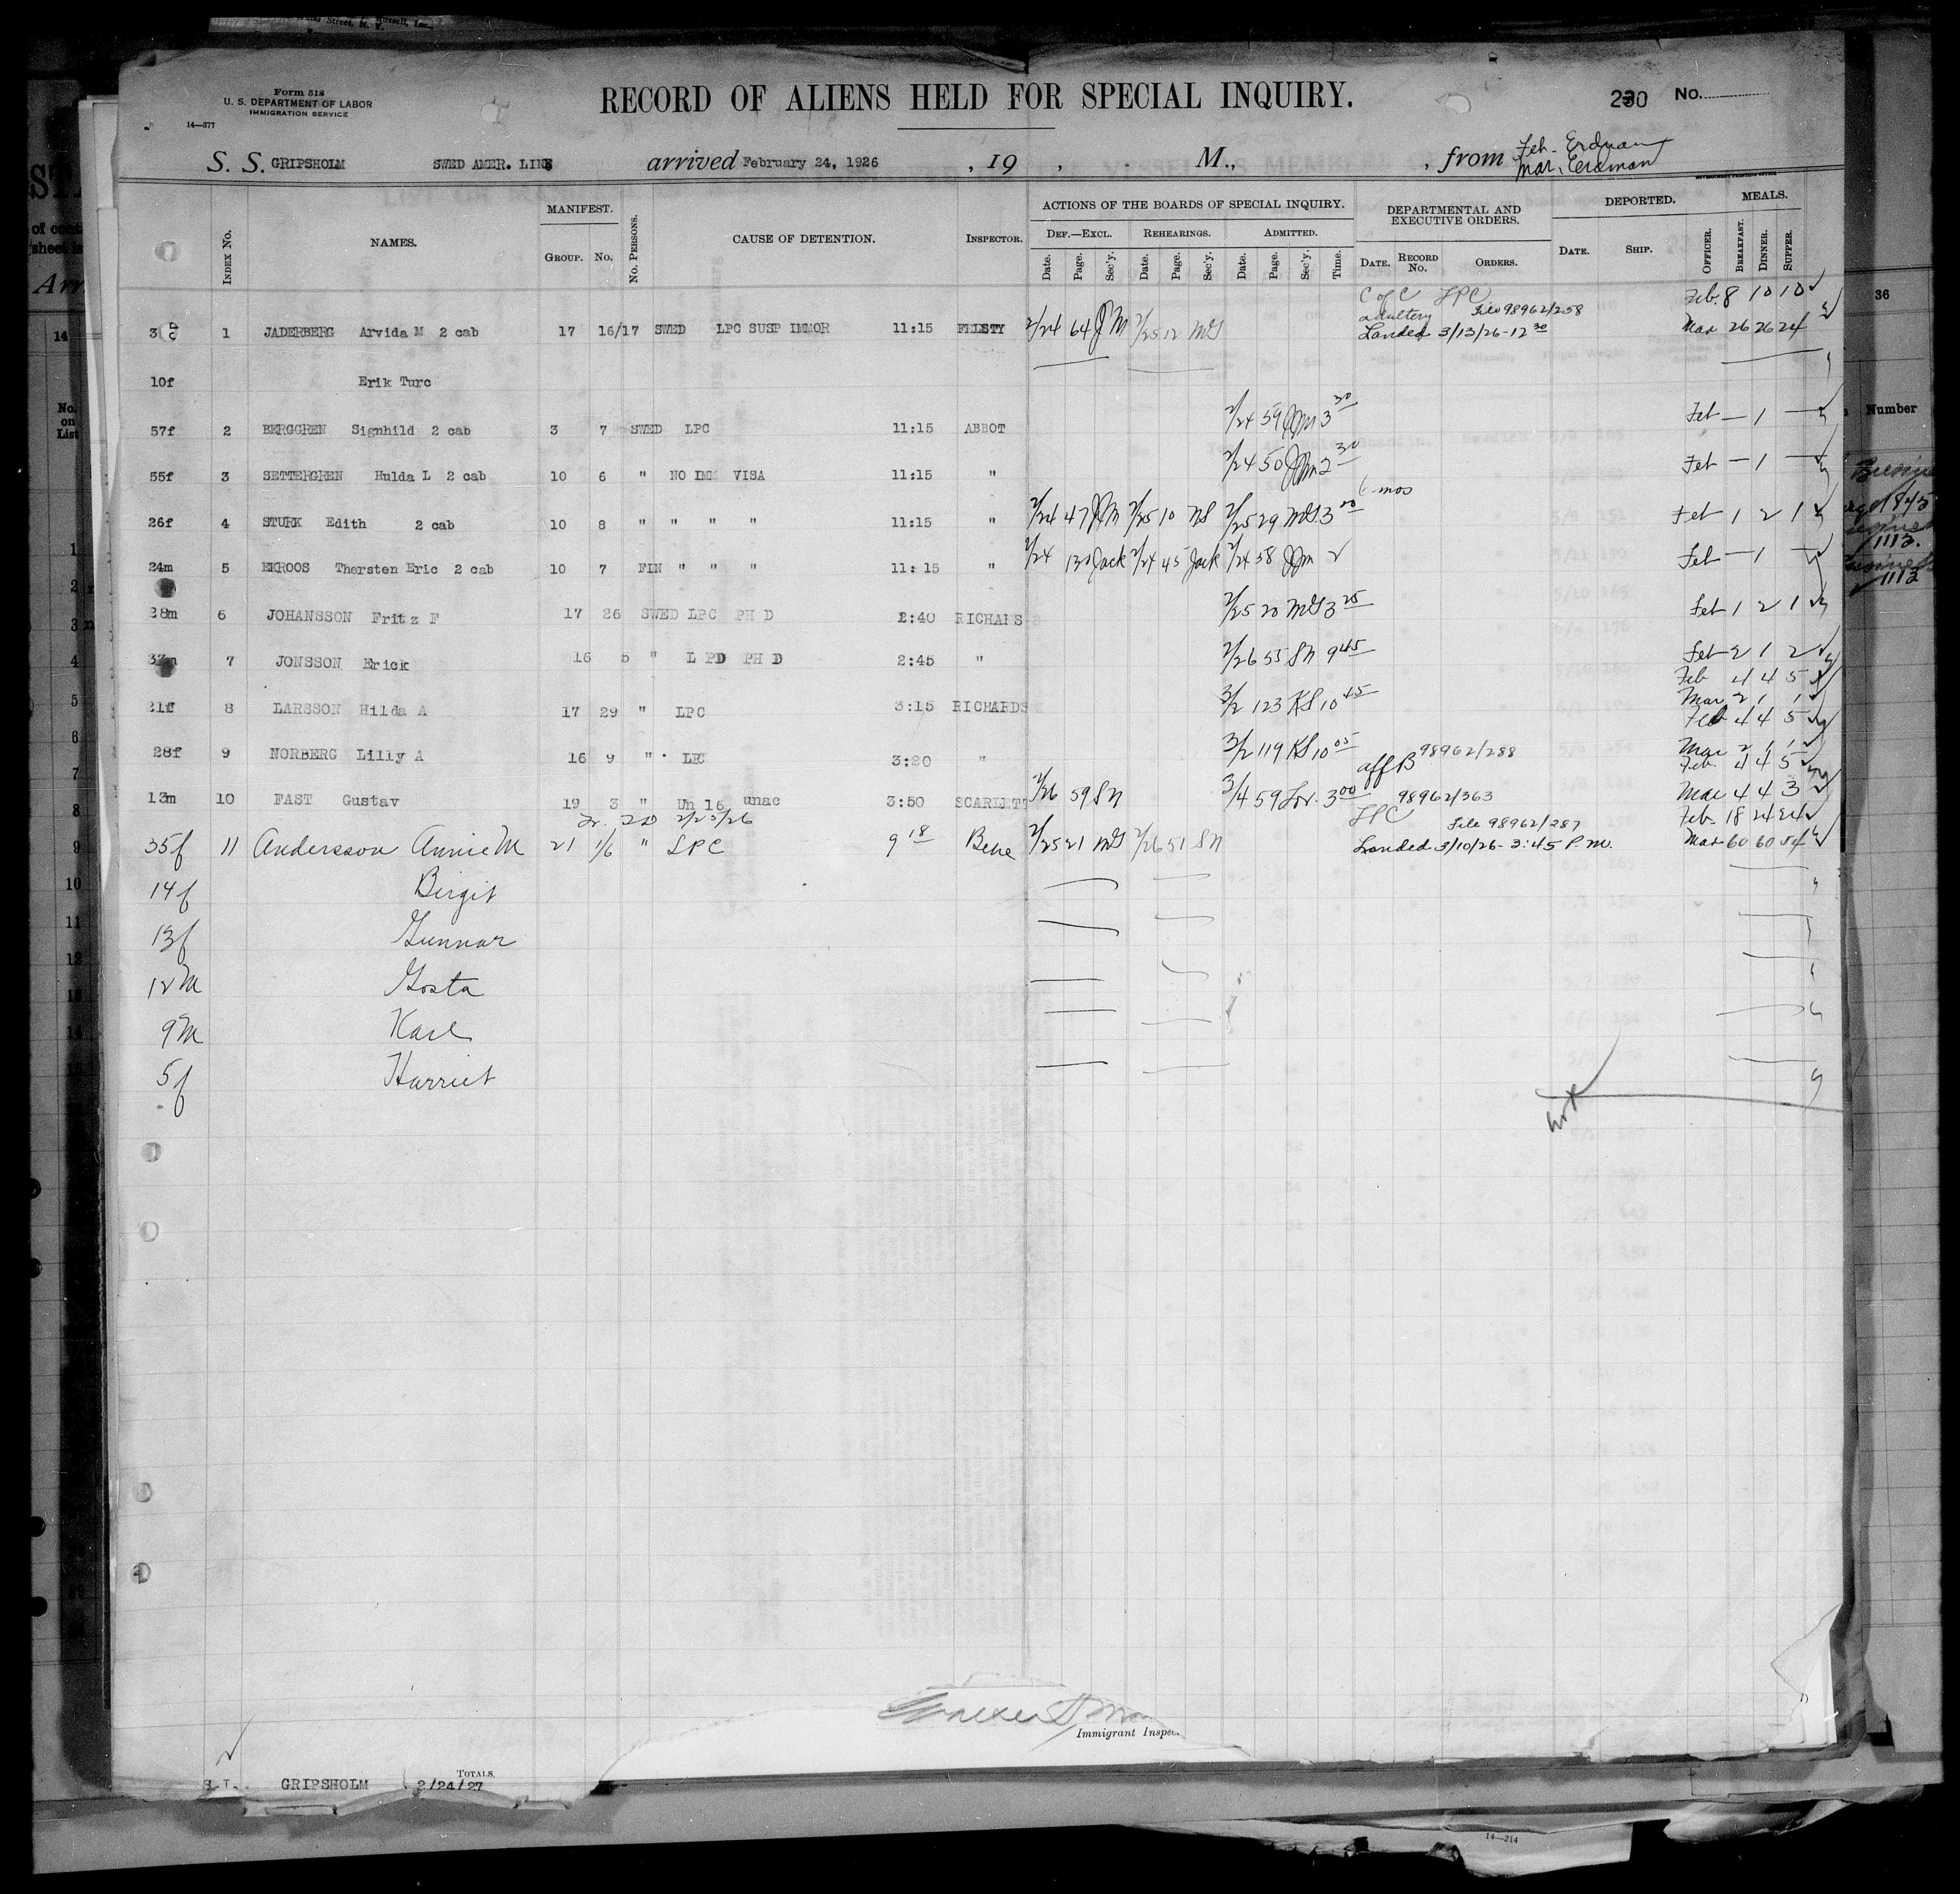 Form 518
U. S. DEPARTMENT OF LABOR
IMMIGRATION SERVICE
14—377
RECORD OF ALIENS HELD FOR SPECIAL INQUIRY.
230 No.
S. S. GRIPSHOLM SWED AMER. LINE arrived February 24, 1926 , 19 , M., , from Feb. Erdman
Mar. Erdman
INDEX No. NAMES. MANIFEST. GROUP. No. No. PERSONS. CAUSE OF DETENTION. INSPECTOR. ACTIONS OF THE BOARDS OF SPECIAL INQUIRY. DEPARTMENTAL AND EXECUTIVE ORDERS. DEPORTED. MEALS.
DEF.—EXCL. REHEARINGS. ADMITTED.
Date. Page. Sec'y. Date. Page. Sec'y. Date. Page. Sec'y. Time. DATE. RECORD No. ORDERS. DATE. SHIP. OFFICER. BREAKFAST. DINNER. SUPPER.
C of C LPC Feb. 8 10 10
adultery File 98962/258
1 JADERBERG Arvida M 2 cab 17 16/17 SWED LPC SUSP IMMOR 11:15 FELSTY 2/24 64 JM 2/25 12 MG Landed 3/13/26-12 30 Mar 26 26 24
10f Erik Ture
57f 2 BERGGREN Signhild 2 cab 3 7 SWED LPC 11:15 ABBOT 2/24 59 JM 3 30 Feb — 1 —
55f 3 SETTERGREN Hulda L 2 cab 10 6 " NO IMM VISA 11:15 " 2/24 50 JM 2 30 Feb — 1 —
6 mos
26f 4 STURK Edith 2 cab 10 8 " " " " 11:15 " 2/24 47 JM 2/25 10 NS 2/25 29 MG 3 00 Feb 1 2 1
24m 5 EKROOS Thorsten Eric 2 cab 10 7 FIN " " " 11:15 " 2/24 130 Jack 2/24 45 Jack 2/24 58 JM 2 Feb — 1 —
28m 6 JOHANSSON Fritz F 17 26 SWED LPC PH D 2:40 RICHARS 2/25 20 MG 3 25 Feb 1 2 1
37m 7 JONSSON Erick 16 5 " L PD PH D 2:45 " 2/26 55 SN 9 45 Feb 2 1 2
Feb 4 4 5
21f 8 LARSSON Hilda A 17 29 " LPC 3:15 RICHARDS 3/2 123 KS 10 45 Mar 2 1 1
Feb 4 4 5
28f 9 NORBERG Lilly A 16 9 " LPC 3:20 " 3/2 119 KS 10 05 Mar 2 1 1
aff B 98962/288 Feb. 4 4 5
13m 10 FAST Gustav 19 3 " Un 16 unac 3:50 SCARLETT 2/26 59 SN 3/4 59 Lov. 3 00 98962/363 Mar 4 4 3
2/25/26 LPC File 98962/287 Feb. 18 24 24
35f 11 Andersson Annie M 21 1/6 " LPC 9 18 Bene 2/25 21 MG 2/26 51 SN Landed 3/10/26 - 3:45 P.M. Mar 60 60 54
14f Birgit
13f Gunnar
12M Gosta
9M Karl
5f Harriet
Immigrant Inspec
TOTALS.
S.I. GRIPSHOLM 2/24/27
14—214
36
Number
1113.
1113
No. on List